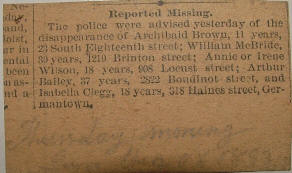 Reported Missing.
The police were advised yesterday of the
disappearance of Archibald Brown, 11 years,
23 South Eighteenth street; William McBride,
39 years, 1219 Brinton street; Annie or Irene
Wilson, 18 years, 908 Locust street; Arthur
Bailey, 37 years, 2822 Boudinot street, and
Isabella Clegg, 18 years, 318 Haines street, Ger-
mantown.
Thursday morning